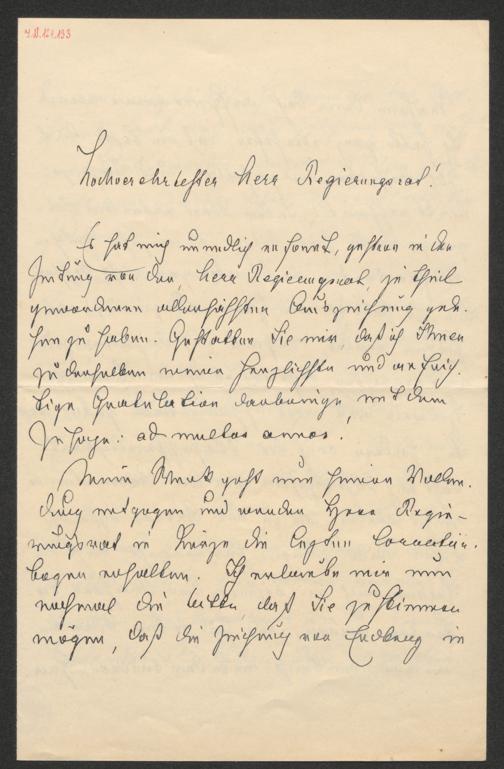 J.N. 124.193
Hochverehrtester Herr Regierungsrat!
Es hat mich unendlich erfreut, gestern in der
Zeitung von der, Herrn Regierungsrat, zu theil
gewordenen allerhöchsten Auszeichnung gele-
sen zu haben. Gestatten Sie mir, daß ich Ihnen
zu derselben meine herzlichste und aufrich-
tige Gratulation darbringe mit dem
Zusatze: ad multos annos!
Mein Werk geht nun seiner Vollen-
dung entgegen und werden Herr Regie-
rungsrat in Kürze die letzten Correctur-
bogen erhalten. Ich erlaube mir nun
nochmal die Bitte, daß Sie zustimmen
mögen, daß die Zeichnung von in